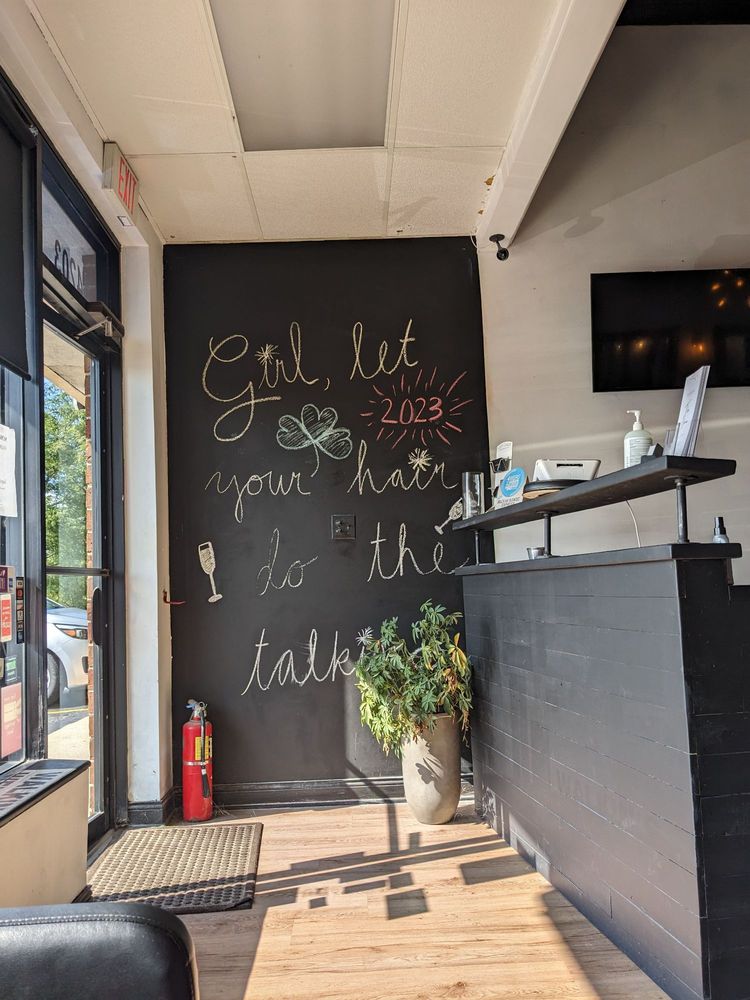 EXIT
4203
Girl, let
2023
your hair
do the
talk